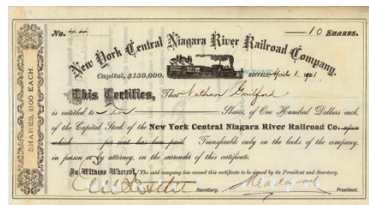 No. — 10 SHARES.
New York Central Niagara River Railroad Company.
Capital, $150,000. BUFFALO, April 1, 1901
This Certifies, That Nathan Guilford
is entitled to Ten Shares, of One Hundred Dollars each,
of the Capital Stock of the New York Central Niagara River Railroad Co. upon
which per cent has been paid. Transferable only on the books of the company,
in person or by attorney, on the surrender of this certificate.
In Witness Whereof, The said company has caused this certificate to be signed by its President and Secretary.
Secretary. President.
SHARES, $100 EACH.